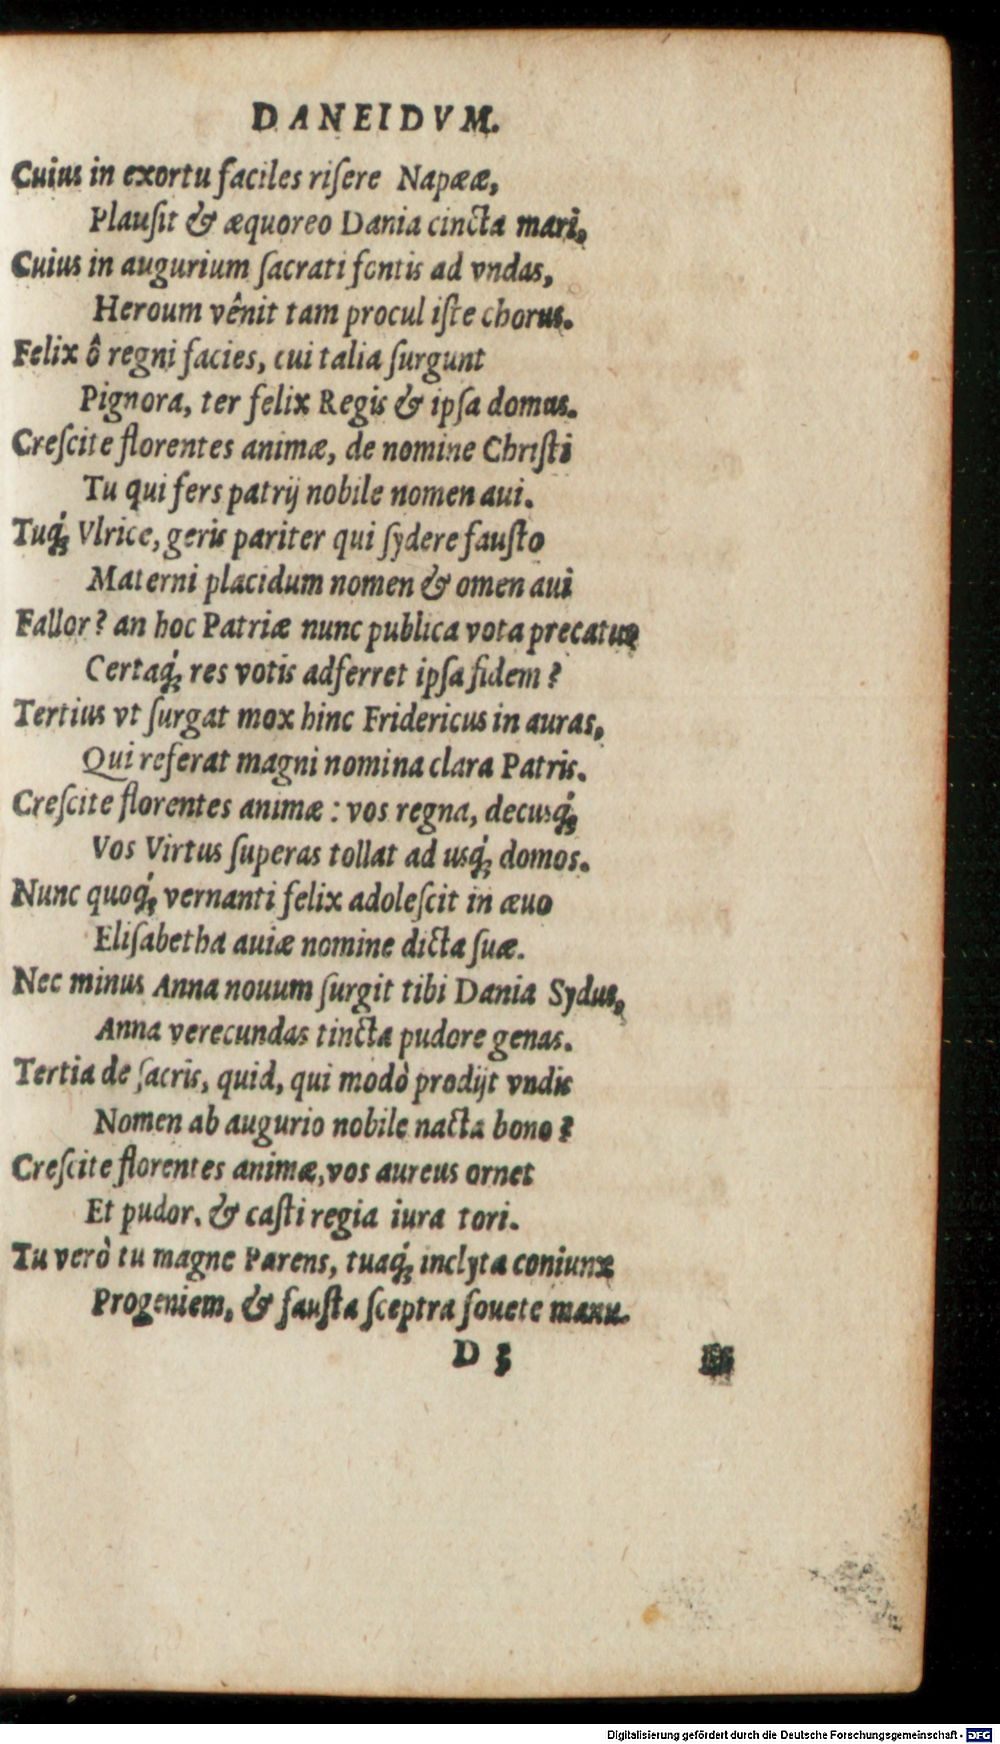 DANEIDVM.
Cuius in exortu faciles riſere Napææ,
Plauſit & æquoreo Dania cincta mari,
Cuius in augurium ſacrati fontis ad vndas,
Heroum vênit tam procul iſte chorus.
Felix ô regni facies, cui talia ſurgunt
Pignora, ter felix Regis & ipſa domus.
Creſcite florentes animæ, de nomine Chriſti
Tu qui fers patrij nobile nomen aui.
Tuq́; Vlrice, geris pariter qui ſydere fauſto
Materni placidum nomen & omen aui
Fallor? an hoc Patriæ nunc publica vota precatur
Certaq́; res votis adferret ipſa fidem?
Tertius vt ſurgat mox hinc Fridericus in auras,
Qui referat magni nomina clara Patris.
Creſcite florentes animæ: vos regna, decusq́;
Vos Virtus ſuperas tollat ad usq́; domos.
Nunc quoq́; vernanti felix adoleſcit in æuo
Eliſabetha auiæ nomine dicta ſuæ.
Nec minus Anna nouum ſurgit tibi Dania Sydus,
Anna verecundas tincta pudore genas.
Tertia de ſacris, quid, qui modò prodijt vndis
Nomen ab augurio nobile nacta bono?
Creſcite florentes animæ, vos aureus ornet
Et pudor, & caſti regia iura tori.
Tu verò tu magne Parens, tuaq́; inclyta coniunx
Progeniem, & fauſta ſceptra fouete manu.
D 3
Digitalisierung gefördert durch die Deutsche Forschungsgemeinschaft - DFG